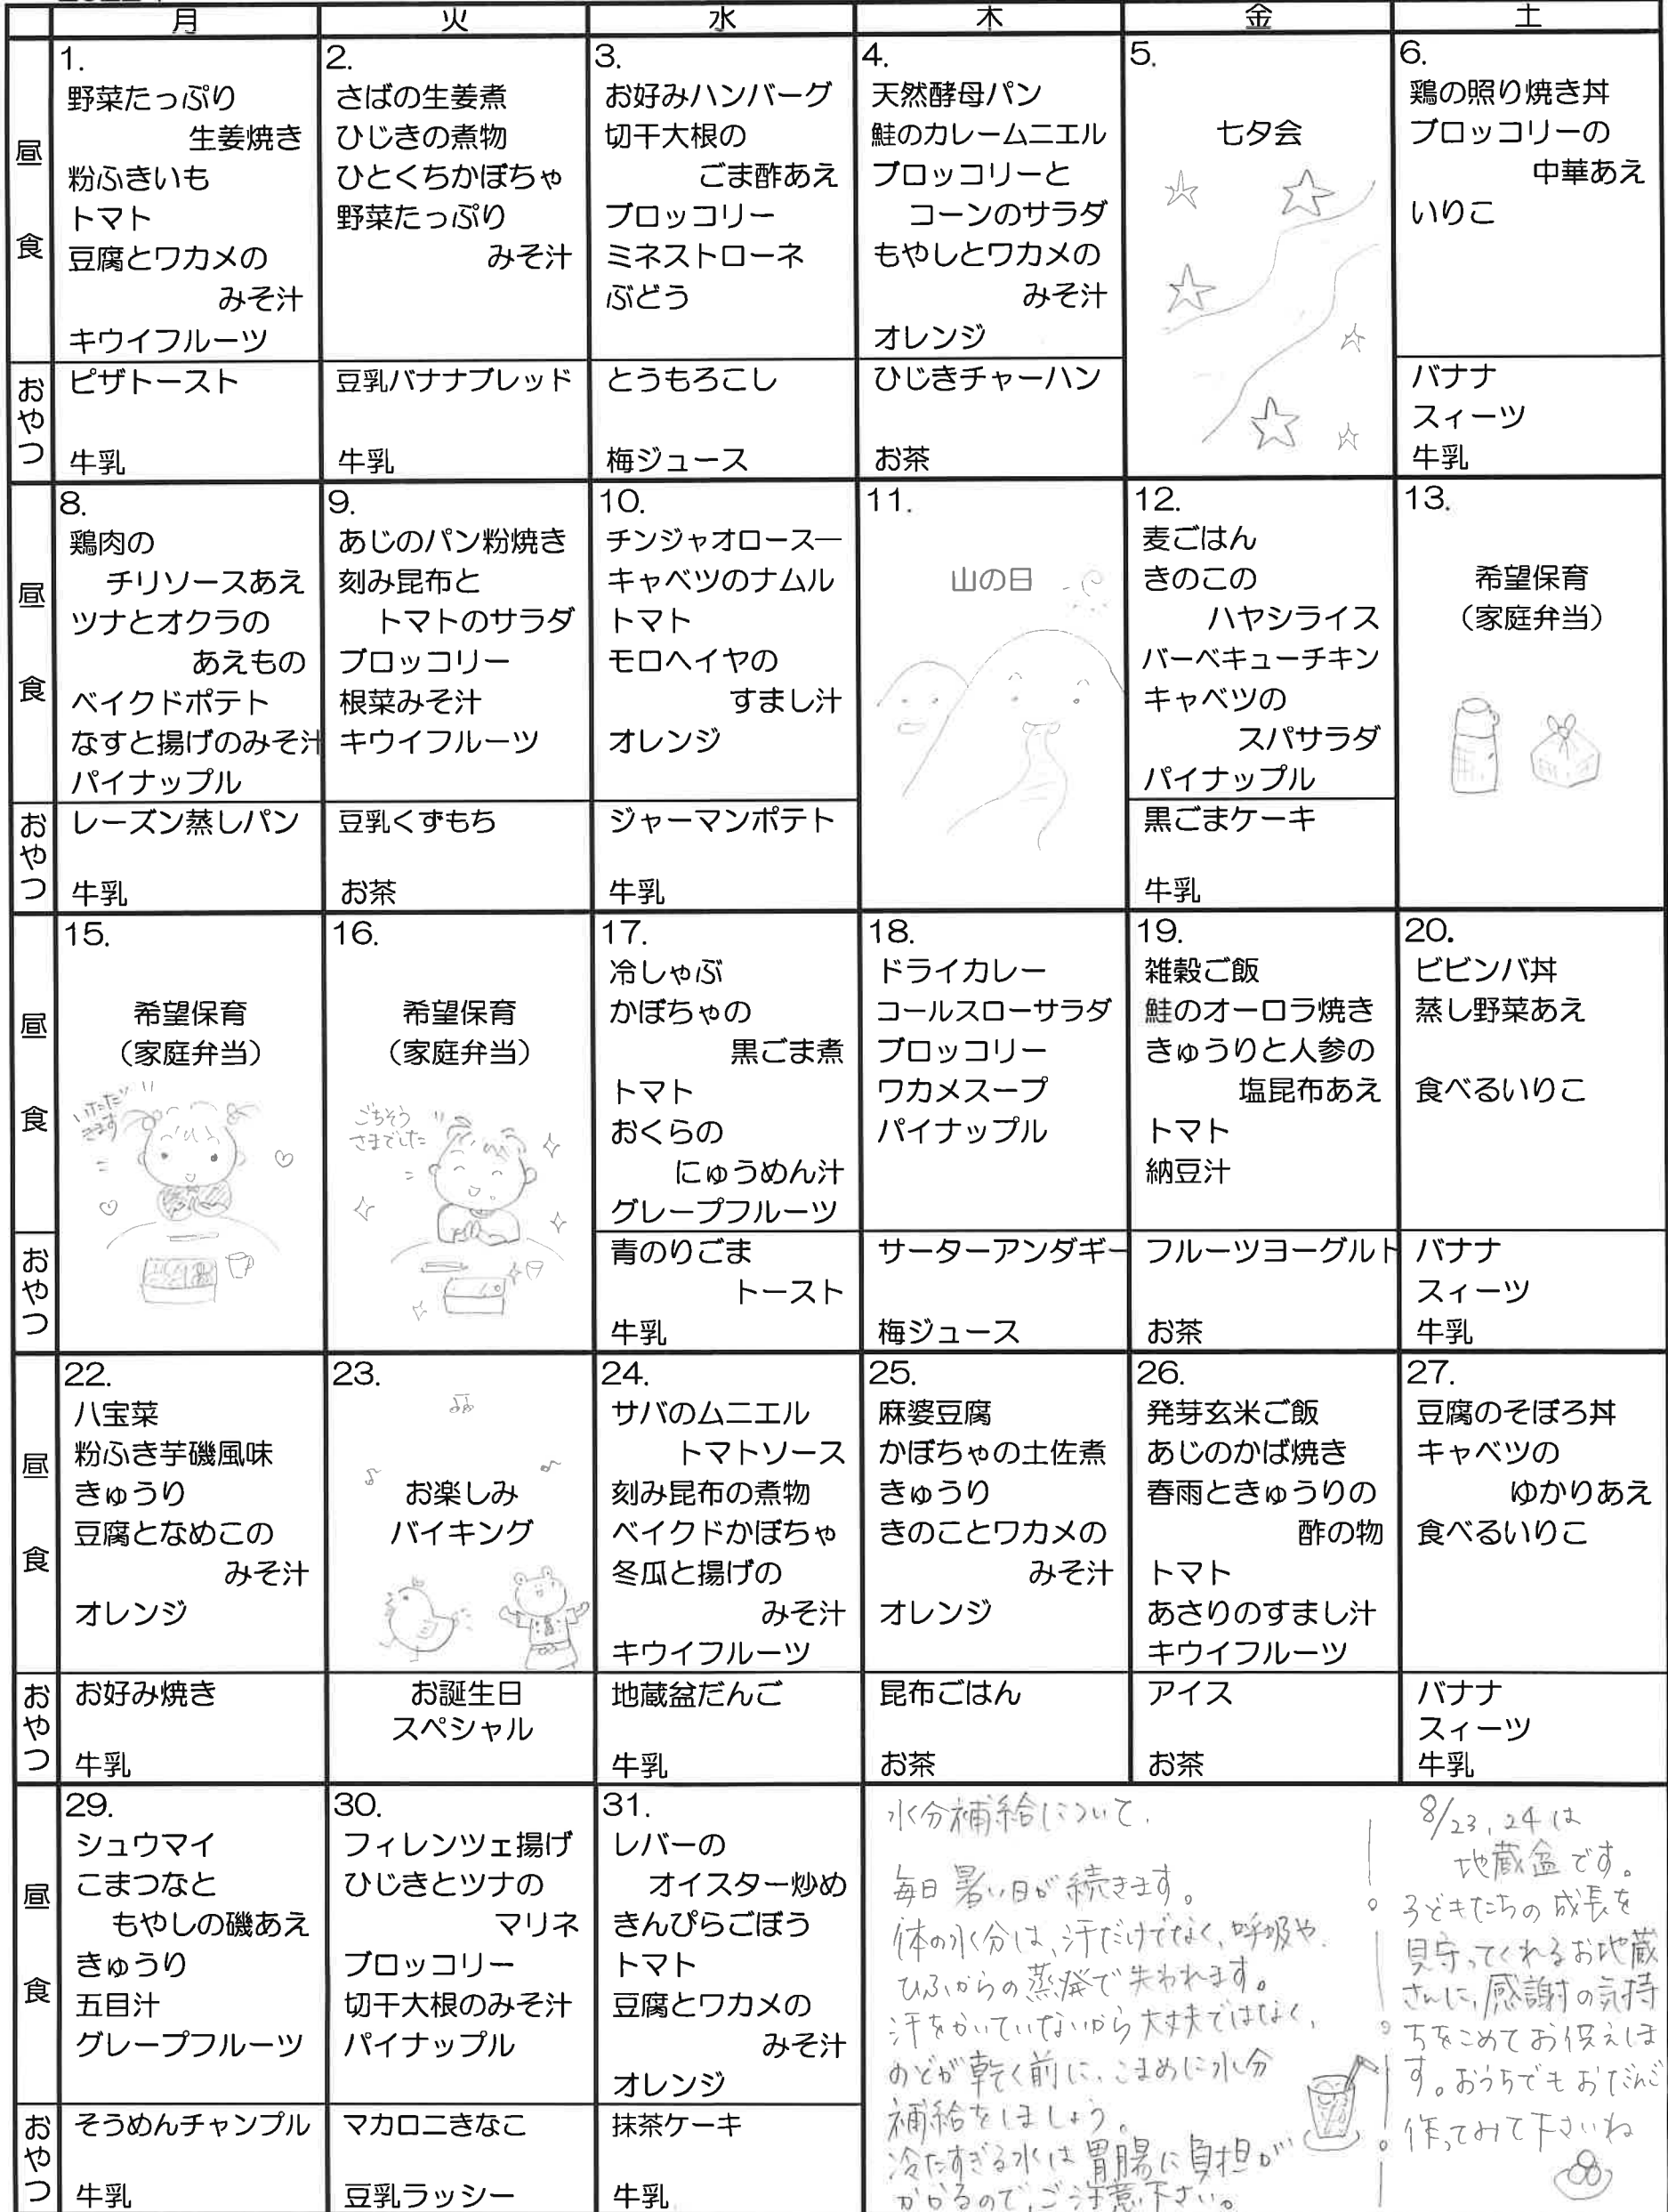 月 火 水 木 金 土
昼食
1.
野菜たっぷり
生姜焼き
粉ふきいも
トマト
豆腐とワカメの
みそ汁
キウイフルーツ
2.
さばの生姜煮
ひじきの煮物
ひとくちかぼちゃ
野菜たっぷり
みそ汁
3.
お好みハンバーグ
切干大根の
ごま酢あえ
ブロッコリー
ミネストローネ
ぶどう
4.
天然酵母パン
鮭のカレームニエル
ブロッコリーと
コーンのサラダ
もやしとワカメの
みそ汁
オレンジ
5.
七夕会
6.
鶏の照り焼き丼
ブロッコリーの
中華あえ
いりこ
おやつ
ピザトースト
牛乳
豆乳バナナブレッド
牛乳
とうもろこし
梅ジュース
ひじきチャーハン
お茶
バナナ
スィーツ
牛乳
昼食
8.
鶏肉の
チリソースあえ
ツナとオクラの
あえもの
ベイクドポテト
なすと揚げのみそ汁
パイナップル
9.
あじのパン粉焼き
刻み昆布と
トマトのサラダ
ブロッコリー
根菜みそ汁
キウイフルーツ
10.
チンジャオロースー
キャベツのナムル
トマト
モロヘイヤの
すまし汁
オレンジ
11.
山の日
12.
麦ごはん
きのこの
ハヤシライス
バーベキューチキン
キャベツの
スパサラダ
パイナップル
13.
希望保育
（家庭弁当）
おやつ
レーズン蒸しパン
牛乳
豆乳くずもち
お茶
ジャーマンポテト
牛乳
黒ごまケーキ
牛乳
昼食
15.
希望保育
（家庭弁当）
いただ
きます
16.
希望保育
（家庭弁当）
ごちそう
さまでした
17.
冷しゃぶ
かぼちゃの
黒ごま煮
トマト
おくらの
にゅうめん汁
グレープフルーツ
18.
ドライカレー
コールスローサラダ
ブロッコリー
ワカメスープ
パイナップル
19.
雑穀ご飯
鮭のオーロラ焼き
きゅうりと人参の
塩昆布あえ
トマト
納豆汁
20.
ビビンバ丼
蒸し野菜あえ
食べるいりこ
おやつ
青のりごま
トースト
牛乳
サーターアンダギー
梅ジュース
フルーツヨーグルト
お茶
バナナ
スィーツ
牛乳
昼食
22.
八宝菜
粉ふき芋磯風味
きゅうり
豆腐となめこの
みそ汁
オレンジ
23.
お楽しみ
バイキング
24.
サバのムニエル
トマトソース
刻み昆布の煮物
ベイクドかぼちゃ
冬瓜と揚げの
みそ汁
キウイフルーツ
25.
麻婆豆腐
かぼちゃの土佐煮
きゅうり
きのことワカメの
みそ汁
オレンジ
26.
発芽玄米ご飯
あじのかば焼き
春雨ときゅうりの
酢の物
トマト
あさりのすまし汁
キウイフルーツ
27.
豆腐のそぼろ丼
キャベツの
ゆかりあえ
食べるいりこ
おやつ
お好み焼き
牛乳
お誕生日
スペシャル
地蔵盆だんご
牛乳
昆布ごはん
お茶
アイス
お茶
バナナ
スィーツ
牛乳
昼食
29.
シュウマイ
こまつなと
もやしの磯あえ
きゅうり
五目汁
グレープフルーツ
30.
フィレンツェ揚げ
ひじきとツナの
マリネ
ブロッコリー
切干大根のみそ汁
パイナップル
31.
レバーの
オイスター炒め
きんぴらごぼう
トマト
豆腐とワカメの
みそ汁
オレンジ
おやつ
そうめんチャンプル
牛乳
マカロニきなこ
豆乳ラッシー
抹茶ケーキ
牛乳
水分補給について、
毎日 暑い日が続きます。
体の水分は、汗だけでなく、呼吸や、
ひふからの蒸発で失われます。
汗をかいていないから大丈夫ではなく、
のどが乾く前に、こまめに水分
補給をしましょう。
冷たすぎる水は胃腸に負担が
かかるので、ご注意下さい。
8/23, 24は
地蔵盆です。
子どもたちの成長を
見守ってくれるお地蔵
さんに、感謝の気持
ちをこめてお供えしま
す。おうちでもおだんご
作ってみて下さいね